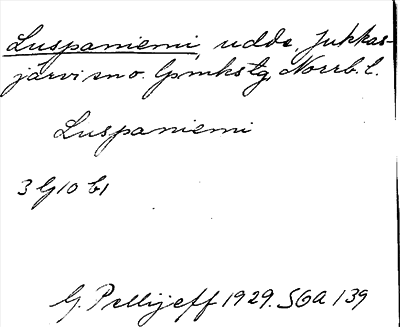 Luspaniemi, udde, Jukkas-
järvi sn o. lpmkstg, Norrb. l.
Luspaniemi
3 G 10 b1
G. Pellijeff 1929. SOA 139